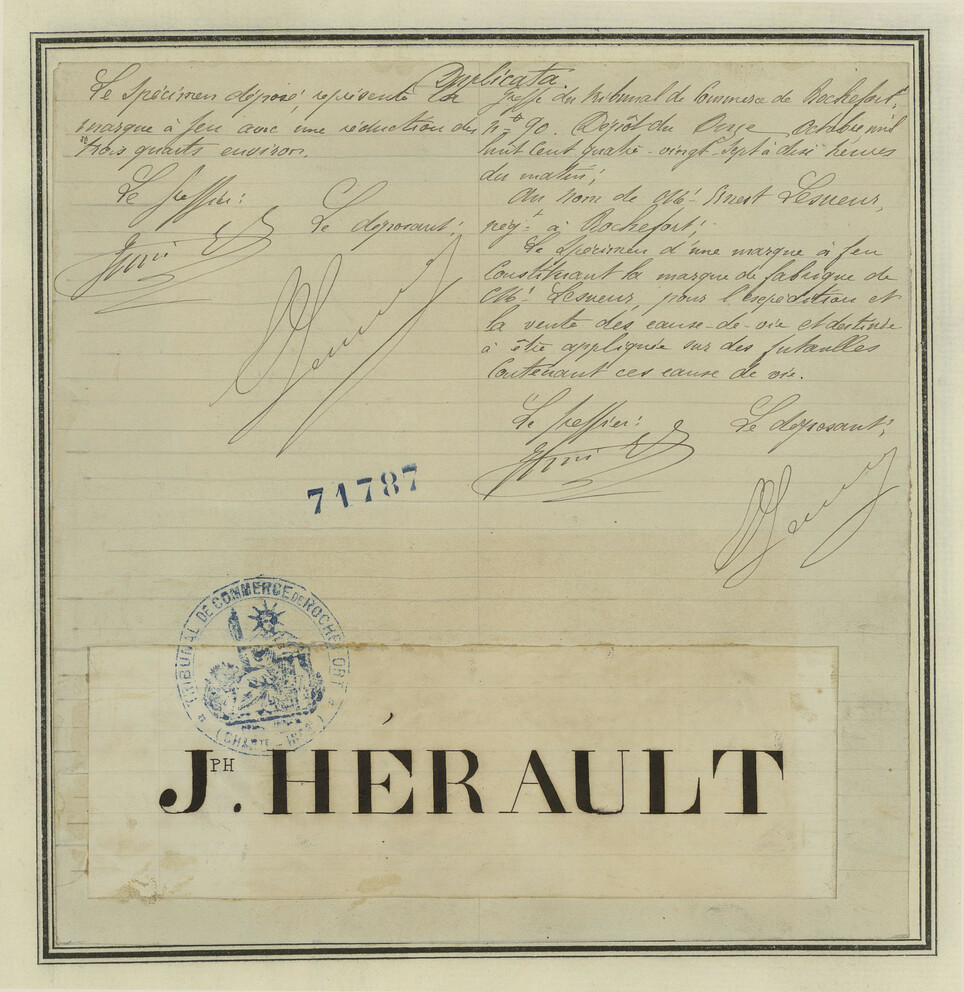 Duplicata.
Le spécimen déposé, représente la
marque à feu avec une réduction des
trois quarts environ.
Le greffier:
Le déposant;
Greffe du Tribunal de Commerce de Rochefort,
n° 90. Dépôt du Onze Octobre mil
huit cent quatre-vingt-sept à dix heures
du matin;
Au nom de Mr Ernest Lesueur,
négt à Rochefort;
Le spécimen d'une marque à feu
constituant la marque de fabrique de
Mr Lesueur, pour l'expédition et
la vente des eaux-de-vie et destinée
à être appliquée sur des futailles
contenant ces eaux de vie.
Le greffier:
Le déposant;
71787
TRIBUNAL DE COMMERCE DE ROCHEFORT
(CHARTE-INFRE)
JPH. HÉRAULT